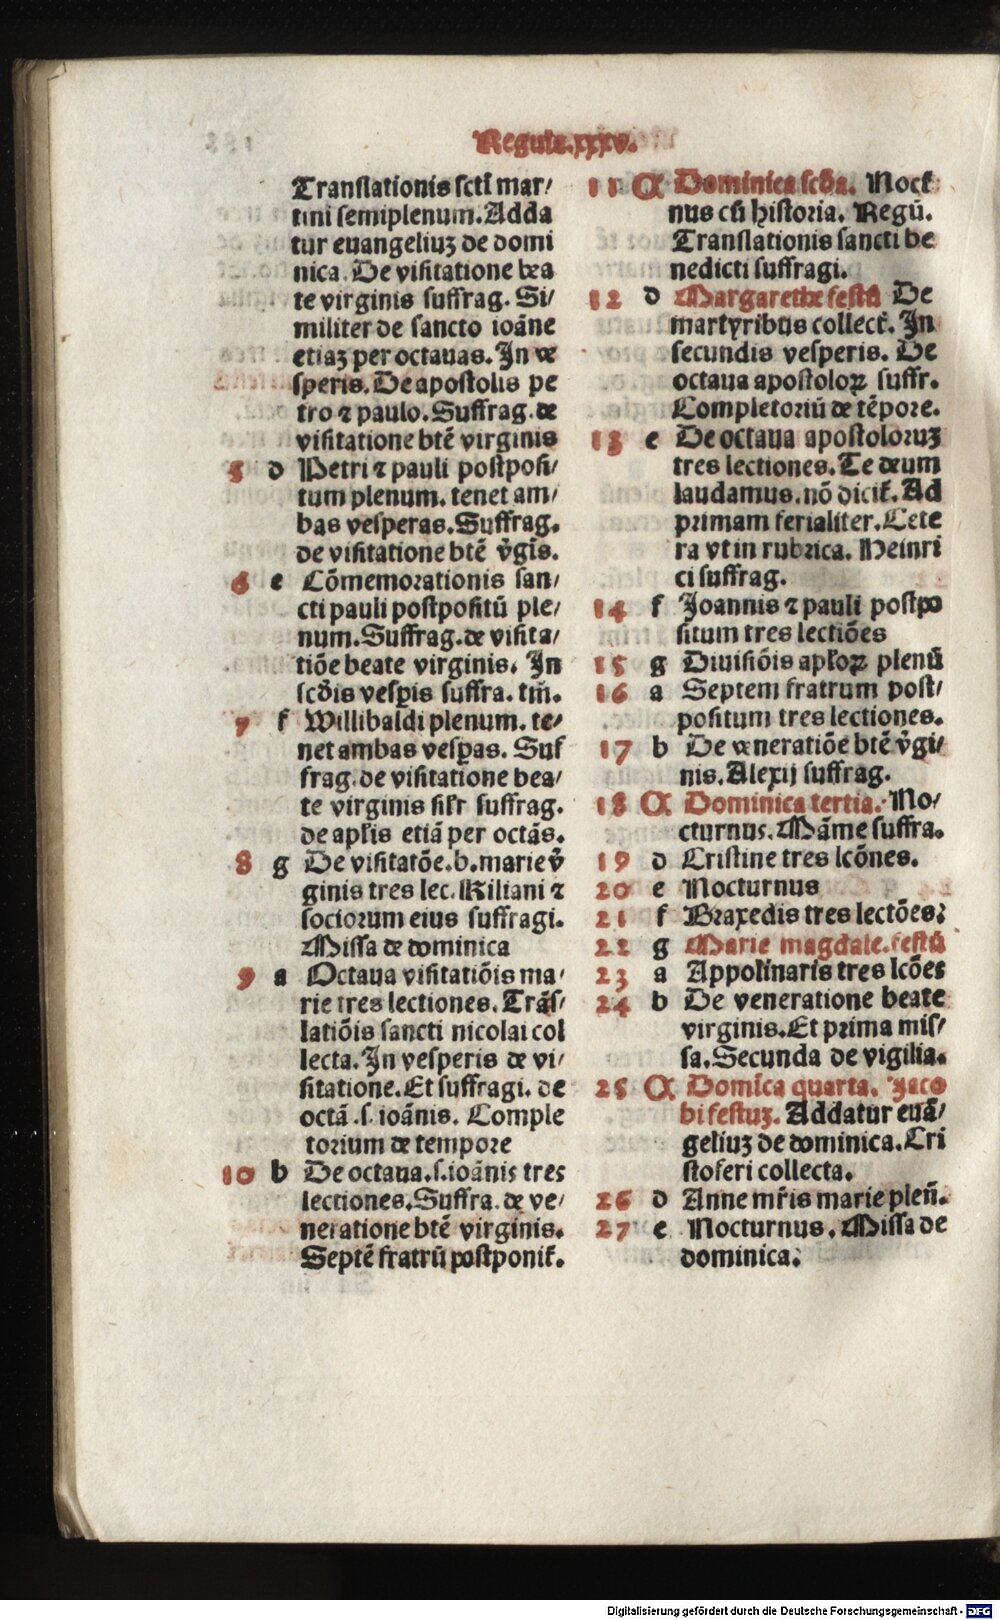 Regula.xxxv.
Translationis sctī mar/
tini semiplenum. Adda
tur euangeliuꝫ de domi
nica. De visitatione bea
te virginis suffrag. Si/
militer de sancto ioāne
etiaꝫ per octauas. In ve
speris. De apostolis pe
tro ⁊ paulo. Suffrag. de
visitatione btē virginis
5 d Petri ⁊ pauli postposi/
tum plenum. tenet am/
bas vesperas. Suffrag.
de visitatione btē v̄gīs.
6 e Cōmemorationis san/
cti pauli postpositū ple/
num. Suffrag. de visita/
tiōe beate virginis. In
scd̄is vesꝑis suffra. tm̄.
7 f Willibaldi plenum. te/
net ambas vesꝑas. Suf
frag. de visitatione bea/
te virginis silr suffrag.
de apl̄is etiā per octās.
8 g De visitatōe. b. marie v̄
ginis tres lec. Kiliani ⁊
sociorum eius suffragi.
Missa de dominica
9 a Octaua visitatiōis ma/
rie tres lectiones. Trās/
latiōis sancti nicolai col
lecta. In vesperis de vi/
sitatione. Et suffragi. de
octā .s. ioānis. Comple
torium de tempore
10 b De octaua. s. ioānis tres
lectiones. Suffra. de ve/
neratione btē virginis.
Septē fratrū postponit̄.
11 A Dominica scd̄a. Noct̄
nus cū historia. Regū.
Translationis sancti be
nedicti suffragi.
12 d Margarethe festū De
martyribus collect̄. In
secundis vesperis. De
octaua apostoloꝝ suffr.
Completoriū de tēpore.
13 e De octaua apostoloruꝫ
tres lectiones. Te deum
laudamus. nō dicit̄. Ad
primam ferialiter. Cete
ra vt in rubrica. Heinri
ci suffrag.
14 f Joannis ⁊ pauli postpo
situm tres lectiōes
15 g Diuisiōis apl̄oꝝ plenū
16 a Septem fratrum post/
positum tres lectiones.
17 b De veneratiōe btē v̄gi/
nis. Alexij suffrag.
18 A Dominica tertia. No/
cturnus. Māme suffra.
19 d Cristine tres lcōnes.
20 e Nocturnus
21 f Braxedis tres lectōes.
22 g Marie magdale. festū
23 a Appolinaris tres lcōes
24 b De veneratione beate
virginis. Et prima mis/
sa. Secunda de vigilia.
25 A Domīca quarta. Jaco
bi festuꝫ. Addatur euā/
geliuꝫ de dominica. Cri
stoferi collecta.
26 d Anne mr̄is marie pleñ.
27 e Nocturnus. Missa de
dominica.
Digitalisierung gefördert durch die Deutsche Forschungsgemeinschaft - DFG